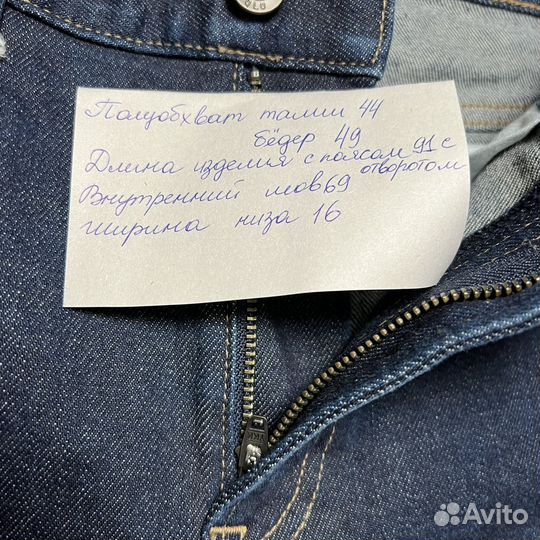 Полуобхват талии 44
бёдер 49
Длина изделия с поясом 91 с
отворотом
Внутренний шов 69
ширина низа 16
YKK
Avito